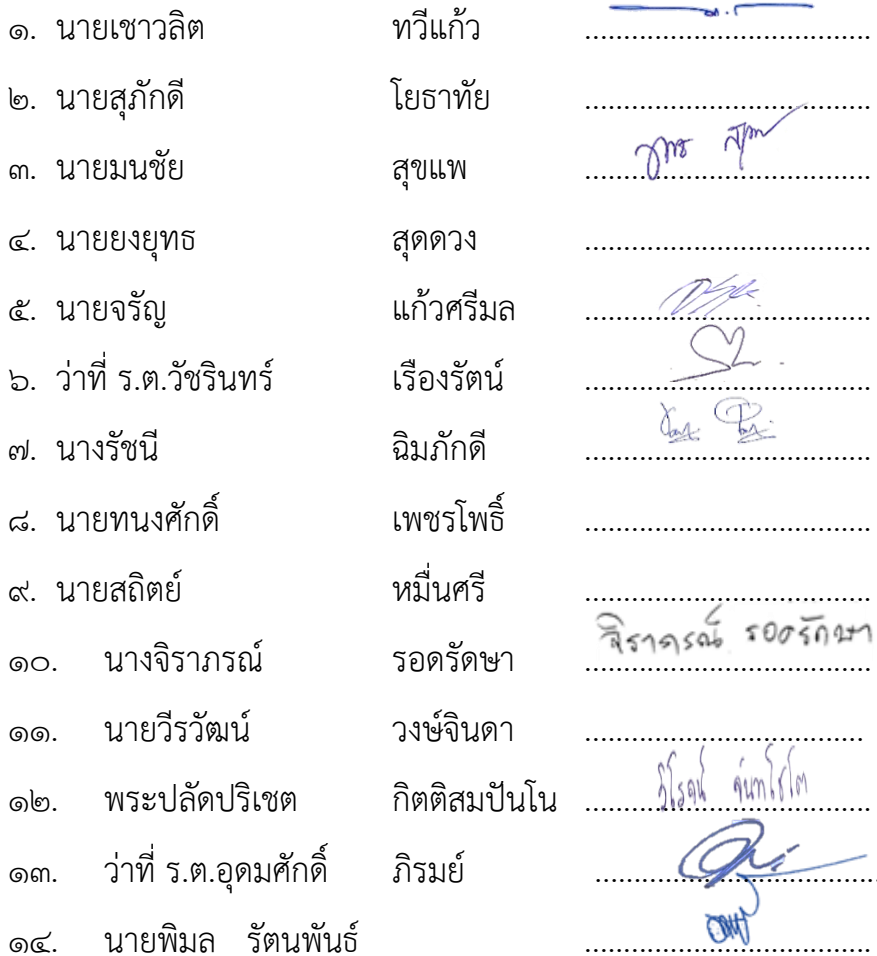 ๑. นายเชาวลิต ทวีแก้ว ..................................
๒. นายสุภักดี โยธาทัย ..................................
๓. นายมนชัย สุขแพ ..................................
๔. นายยงยุทธ สุดดวง ..................................
๕. นายจรัญ แก้วศรีมล ..................................
๖. ว่าที่ ร.ต.วัชรินทร์ เรืองรัตน์ ..................................
๗. นางรัชนี ฉิมภักดี ..................................
๘. นายทนงศักดิ์ เพชรโพธิ์ ..................................
๙. นายสถิตย์ หมื่นศรี ..................................
จิราภรณ์ รอดรักษา
๑๐. นางจิราภรณ์ รอดรัดษา ..................................
๑๑. นายวีรวัฒน์ วงษ์จินดา .................................
๑๒. พระปลัดปริเชต กิตติสมปันโน ..................................
๑๓. ว่าที่ ร.ต.อุดมศักดิ์ ภิรมย์ ..................................
๑๔. นายพิมล รัตนพันธ์ ..................................